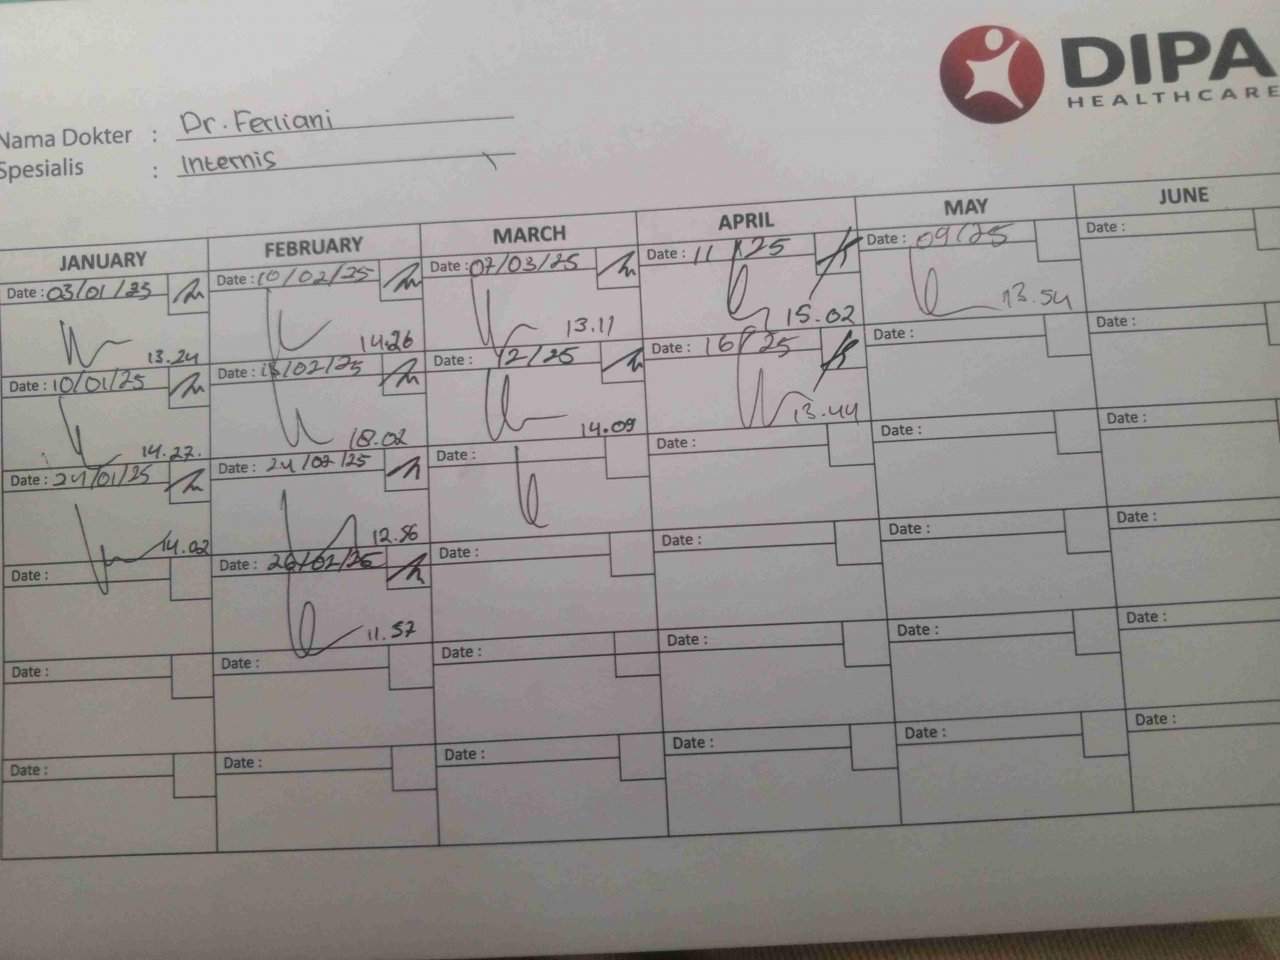 DIPA
HEALTHCARE
Nama Dokter : Dr. Ferliani
Spesialis : Internis
JANUARY FEBRUARY MARCH APRIL MAY JUNE
Date : 03/01/25 Date : 10/02/25 Date : 07/03/25 Date : 11 /25 Date : 09/25 Date :
13.24 14.26 13.11 15.02 13.54
Date : 10/01/25 Date : /02/25 Date : 12/25 Date : 16/25 Date : Date :
14.22. 18.02 14.09 13.44
Date : 24/01/25 Date : 24/02/25 Date : Date : Date : Date :
14.02 12.56
Date : Date : 26/02/25 Date : Date : Date : Date :
11.57
Date : Date : Date : Date : Date : Date :
Date : Date : Date : Date : Date : Date :